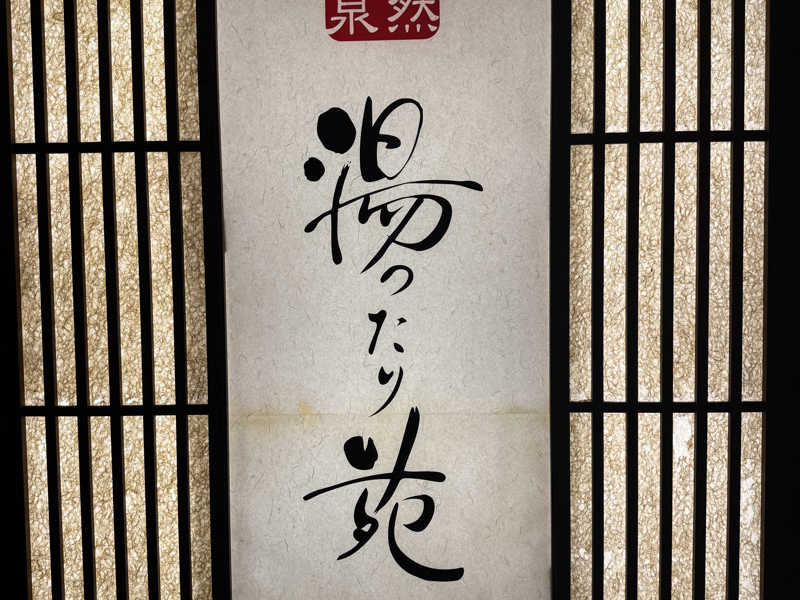 然泉
湯ったり苑